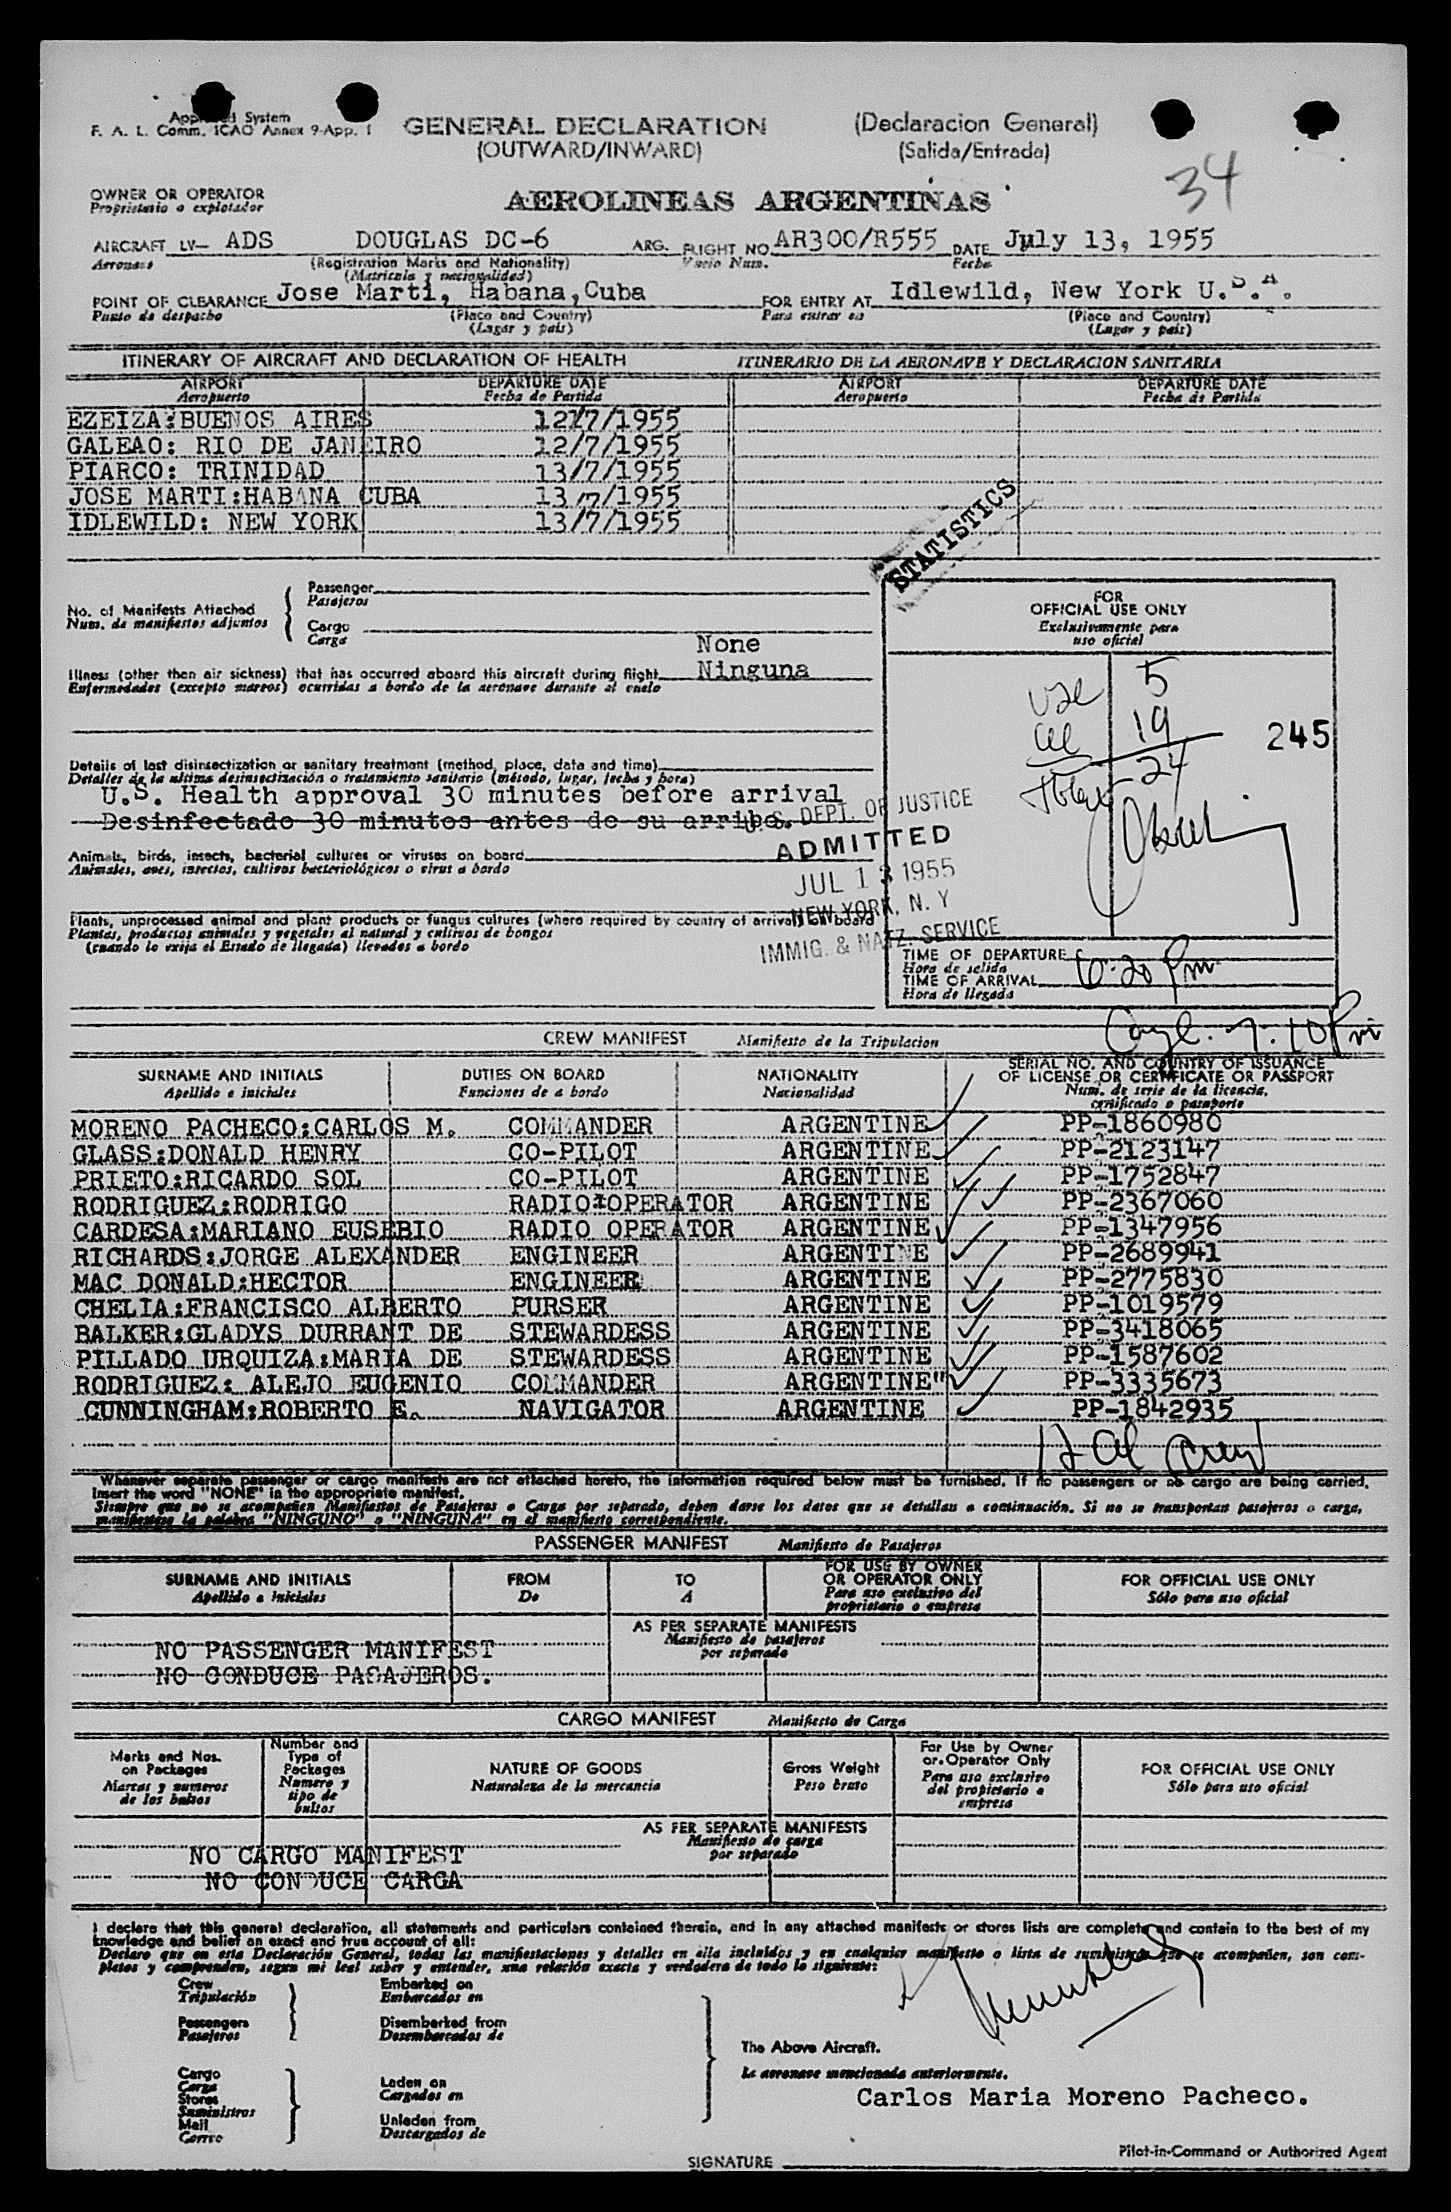 Approved System
F. A. L. Comm. ICAO Annex 9-App. 1
GENERAL DECLARATION (Declaracion General)
(OUTWARD/INWARD) (Salida/Entrada)
34
OWNER OR OPERATOR
Propietario o explotador
AEROLINEAS ARGENTINAS
AIRCRAFT LV— ADS DOUGLAS DC-6 ARG. FLIGHT NO AR300/R555 DATE July 13, 1955
Aeronave (Registration Marks and Nationality) Vuelo Num. Fecha
(Matricula y nacionalidad)
POINT OF CLEARANCE Jose Marti, Habana, Cuba FOR ENTRY AT Idlewild, New York U.S.A.
Punto de despacho (Place and Country) Para entrar en (Place and Country)
(Lugar y pais) (Lugar y pais)
ITINERARY OF AIRCRAFT AND DECLARATION OF HEALTH ITINERARIO DE LA AERONAVE Y DECLARACION SANITARIA
AIRPORT DEPARTURE DATE AIRPORT DEPARTURE DATE
Aeropuerto Fecha de Partida Aeropuerto Fecha de Partida
EZEIZA:BUENOS AIRES 12/7/1955
GALEAO: RIO DE JANEIRO 12/7/1955
PIARCO: TRINIDAD 13/7/1955
JOSE MARTI:HABANA CUBA 13/7/1955
IDLEWILD: NEW YORK 13/7/1955
STATISTICS
No. of Manifests Attached
Num. de manifiestos adjuntos
Passenger
Pasajeros
Cargo
Carga
FOR
OFFICIAL USE ONLY
Exclusivamente para
uso oficial
None
Illness (other than air sickness) that has occurred aboard this aircraft during flight Ninguna
Enfermedades (excepto mareos) ocurridas a bordo de la aeronave durante el vuelo
5
19
24
245
Details of last disinsectization or sanitary treatment (method, place, date and time)
Detalles de la ultima desinsectización o tratamiento sanitario (método, lugar, fecha y hora)
U.S. Health approval 30 minutes before arrival
Desinfectado 30 minutos antes de su arribo.
U. S. DEPT. OF JUSTICE
ADMITTED
JUL 13 1955
NEW YORK, N. Y
IMMIG. & NATZ. SERVICE
Animals, birds, insects, bacterial cultures or viruses on board
Animales, aves, insectos, cultivos bacteriológicos o virus a bordo
Plants, unprocessed animal and plant products or fungus cultures (where required by country of arrival) on board
Plantas, productos animales y vegetales al natural y cultivos de hongos
(cuando lo exija el Estado de llegada) llevados a bordo
TIME OF DEPARTURE
Hora de salida
TIME OF ARRIVAL 6:20 Pm
Hora de llegada
7:10 Pm
CREW MANIFEST Manifiesto de la Tripulacion
SURNAME AND INITIALS DUTIES ON BOARD NATIONALITY SERIAL NO. AND COUNTRY OF ISSUANCE
OF LICENSE OR CERTIFICATE OR PASSPORT
Apellido e iniciales Funciones de a bordo Nacionalidad Num. de serie de la licencia,
certificado o pasaporte
MORENO PACHECO:CARLOS M. COMMANDER ARGENTINE PP-1860980
GLASS:DONALD HENRY CO-PILOT ARGENTINE PP-2123147
PRIETO:RICARDO SOL CO-PILOT ARGENTINE PP-1752847
RODRIGUEZ:RODRIGO RADIO OPERATOR ARGENTINE PP-2367060
CARDESA:MARIANO EUSEBIO RADIO OPERATOR ARGENTINE PP-1347956
RICHARDS:JORGE ALEXANDER ENGINEER ARGENTINE PP-2689941
MAC DONALD:HECTOR ENGINEER ARGENTINE PP-2775830
CHELIA:FRANCISCO ALBERTO PURSER ARGENTINE PP-1019579
BALKER:GLADYS DURRANT DE STEWARDESS ARGENTINE PP-3418065
PILLADO URQUIZA:MARIA DE STEWARDESS ARGENTINE PP-1587602
RODRIGUEZ: ALEJO EUGENIO COMMANDER ARGENTINE" PP-3335673
CUNNINGHAM:ROBERTO E. NAVIGATOR ARGENTINE PP-1842935
12 al Crew
Whenever separate passenger or cargo manifests are not attached hereto, the information required below must be furnished. If no passengers or no cargo are being carried,
insert the word "NONE" in the appropriate manifest.
Siempre que no se acompañen Manifiestos de Pasajeros o Carga por separado, deben darse los datos que se detallan a continuación. Si no se transportan pasajeros o carga,
manifiestese la palabra "NINGUNO" o "NINGUNA" en el manifiesto correspondiente.
PASSENGER MANIFEST Manifiesto de Pasajeros
SURNAME AND INITIALS FROM TO FOR USE BY OWNER
OR OPERATOR ONLY FOR OFFICIAL USE ONLY
Apellido e iniciales De A Para uso exclusivo del
propietario o empresa Sólo para uso oficial
AS PER SEPARATE MANIFESTS
Manifiesto de pasajeros
por separado
NO PASSENGER MANIFEST
NO CONDUCE PASAJEROS.
CARGO MANIFEST Manifiesto de Carga
Marks and Nos.
on Packages
Marcas y numeros
de los bultos
Number and
Type of
Packages
Numero y
tipo de
bultos
NATURE OF GOODS
Naturaleza de la mercancia
Gross Weight
Peso bruto
For Use by Owner
or Operator Only
Para uso exclusivo
del propietario o
empresa
FOR OFFICIAL USE ONLY
Sólo para uso oficial
AS PER SEPARATE MANIFESTS
Manifiesto de carga
por separado
NO CARGO MANIFEST
NO CONDUCE CARGA
I declare that this general declaration, all statements and particulars contained therein, and in any attached manifests or stores lists are complete and contain to the best of my
knowledge and belief an exact and true account of all:
Declaro que en esta Declaración General, todas las manifestaciones y detalles en ella incluidos y en cualquier manifiesto o lista de suministros que se acompañen, son com-
pletos y comprenden, segun mi leal saber y entender, una relación exacta y verdadera de todo lo siguiente:
Crew Embarked on
Tripulación Embarcados en
Passengers Disembarked from
Pasajeros Desembarcados de
The Above Aircraft.
La aeronave mencionada anteriormente.
Cargo
Carga
Stores
Suministros
Mail
Correo
Laden on
Cargados en
Unladen from
Descargados de
Carlos Maria Moreno Pacheco.
Pilot-in-Command or Authorized Agent
SIGNATURE